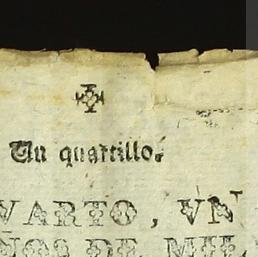 Un quartillo.
VARTO, VN
ÑOS DE MIL